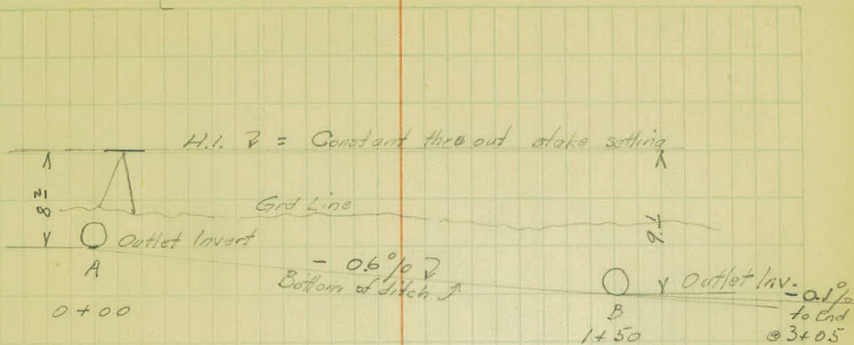 H.I. = Constant thru out stake setting
8.2
Grd Line
9.1
Outlet Invert
A
- 0.6%
Bottom of ditch
Outlet Inv.
B
- 0.1%
to End
0+00
1+50
@ 3+05